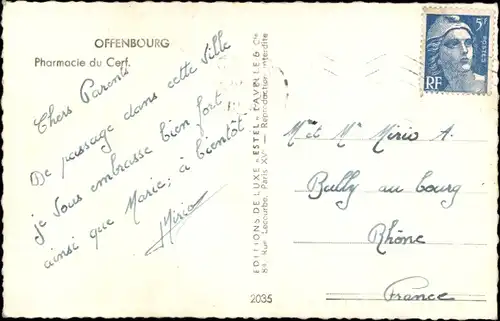 OFFENBOURG
Pharmacie du Cerf.
Chers Parents
De passage dans cette Ville
je vous embrasse bien fort
ainsi que Marie; à bientôt
Mirio
EDITIONS DE LUXE "ESTEL" LAVELLE & Cie
89, Rue Lecourbe, Paris XVe — Reproduction interdite
2035
5F
POSTES
RF
M et Me Mirio A.
Bully au bourg
Rhône
France